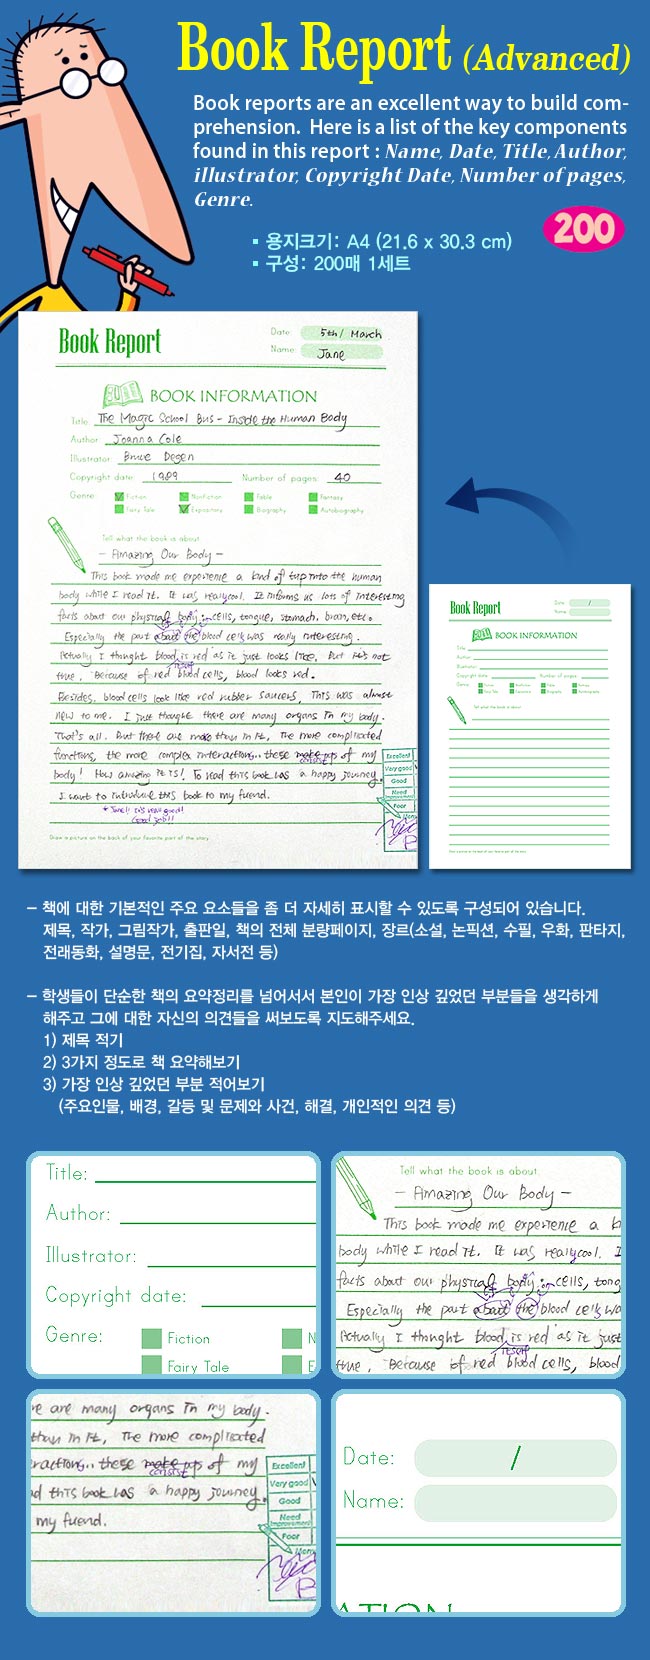 Book Report (Advanced)
Book reports are an excellent way to build com-
prehension. Here is a list of the key components
found in this report : Name, Date, Title, Author,
illustrator, Copyright Date, Number of pages,
Genre.
200
▪ 용지크기: A4 (21.6 x 30.3 cm)
▪ 구성: 200매 1세트
Book Report
Date: 5th / March
Name: Jane
BOOK INFORMATION
Title: The Magic School Bus - Inside the Human Body
Author: Joanna Cole
Illustrator: Bruce Degen
Copyright date: 1989 Number of pages: 40
Genre: Fiction Nonfiction Fable Fantasy
Fairy Tale Expository Biography Autobiography
Tell what the book is about.
- Amazing Our Body -
This book made me experience a kind of trip into the human
body while I read it. It was really cool. It informs us lots of interesting
facts about our physical body : cells, tongue, stomach, brain, etc.
Especially the part about the blood cells was really interesting.
Actually I thought blood is red as it just looks like. But it's not
itself
true. Because of red blood cells, blood looks red.
Besides, blood cells look like red rubber saucers. This was almost
new to me. I just thought there are many organs in my body.
That's all. But there are more than in it. The more complicated
functions, the more complex interactions.. these make ups of my
consist
body! How amazing it is! To read this book was a happy journey.
I want to introduce this book to my friend.
* Jane!! It's very good!
Good job!!
Excellent
Very good
Good
Need
Improvement
Poor
Draw a picture on the back of your favorite part of the story.
Book Report
Date: /
Name:
BOOK INFORMATION
Title:
Author:
Illustrator:
Copyright date: Number of pages:
Genre: Fiction Nonfiction Fable Fantasy
Fairy Tale Expository Biography Autobiography
Tell what the book is about.
Draw a picture on the back of your favorite part of the story.
– 책에 대한 기본적인 주요 요소들을 좀 더 자세히 표시할 수 있도록 구성되어 있습니다.
제목, 작가, 그림작가, 출판일, 책의 전체 분량페이지, 장르(소설, 논픽션, 수필, 우화, 판타지,
전래동화, 설명문, 전기집, 자서전 등)
– 학생들이 단순한 책의 요약정리를 넘어서서 본인이 가장 인상 깊었던 부분들을 생각하게
해주고 그에 대한 자신의 의견들을 써보도록 지도해주세요.
1) 제목 적기
2) 3가지 정도로 책 요약해보기
3) 가장 인상 깊었던 부분 적어보기
(주요인물, 배경, 갈등 및 문제와 사건, 해결, 개인적인 의견 등)
Title:
Author:
Illustrator:
Copyright date:
Genre: Fiction N
Fairy Tale E
Tell what the book is about.
- Amazing Our Body -
This book made me experience a k
body while I read it. It was really cool. I
facts about our physical body : cells, tong
Especially the part about the blood cells wa
Actually I thought blood is red as it just
itself
true. Because of red blood cells, blood
re are many organs in my body.
than in it. The more complicated
ractions.. these make ups of my
consist
d this book was a happy journey.
my friend.
Excellent
Very good
Good
Need
Improvement
Poor
Date: /
Name:
ATION